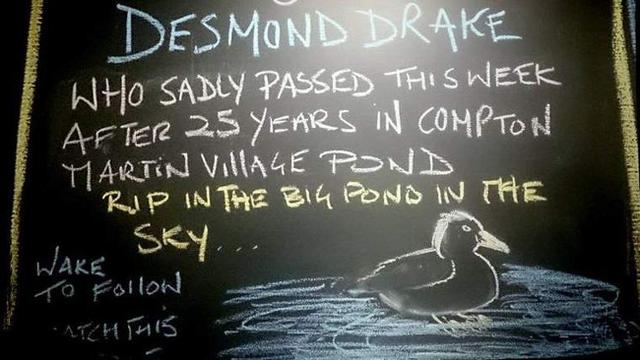 DESMOND DRAKE
WHO SADLY PASSED THIS WEEK
AFTER 25 YEARS IN COMPTON
MARTIN VILLAGE POND
RIP IN THE BIG POND IN THE
SKY....
WAKE
TO FOLLOW
THIS